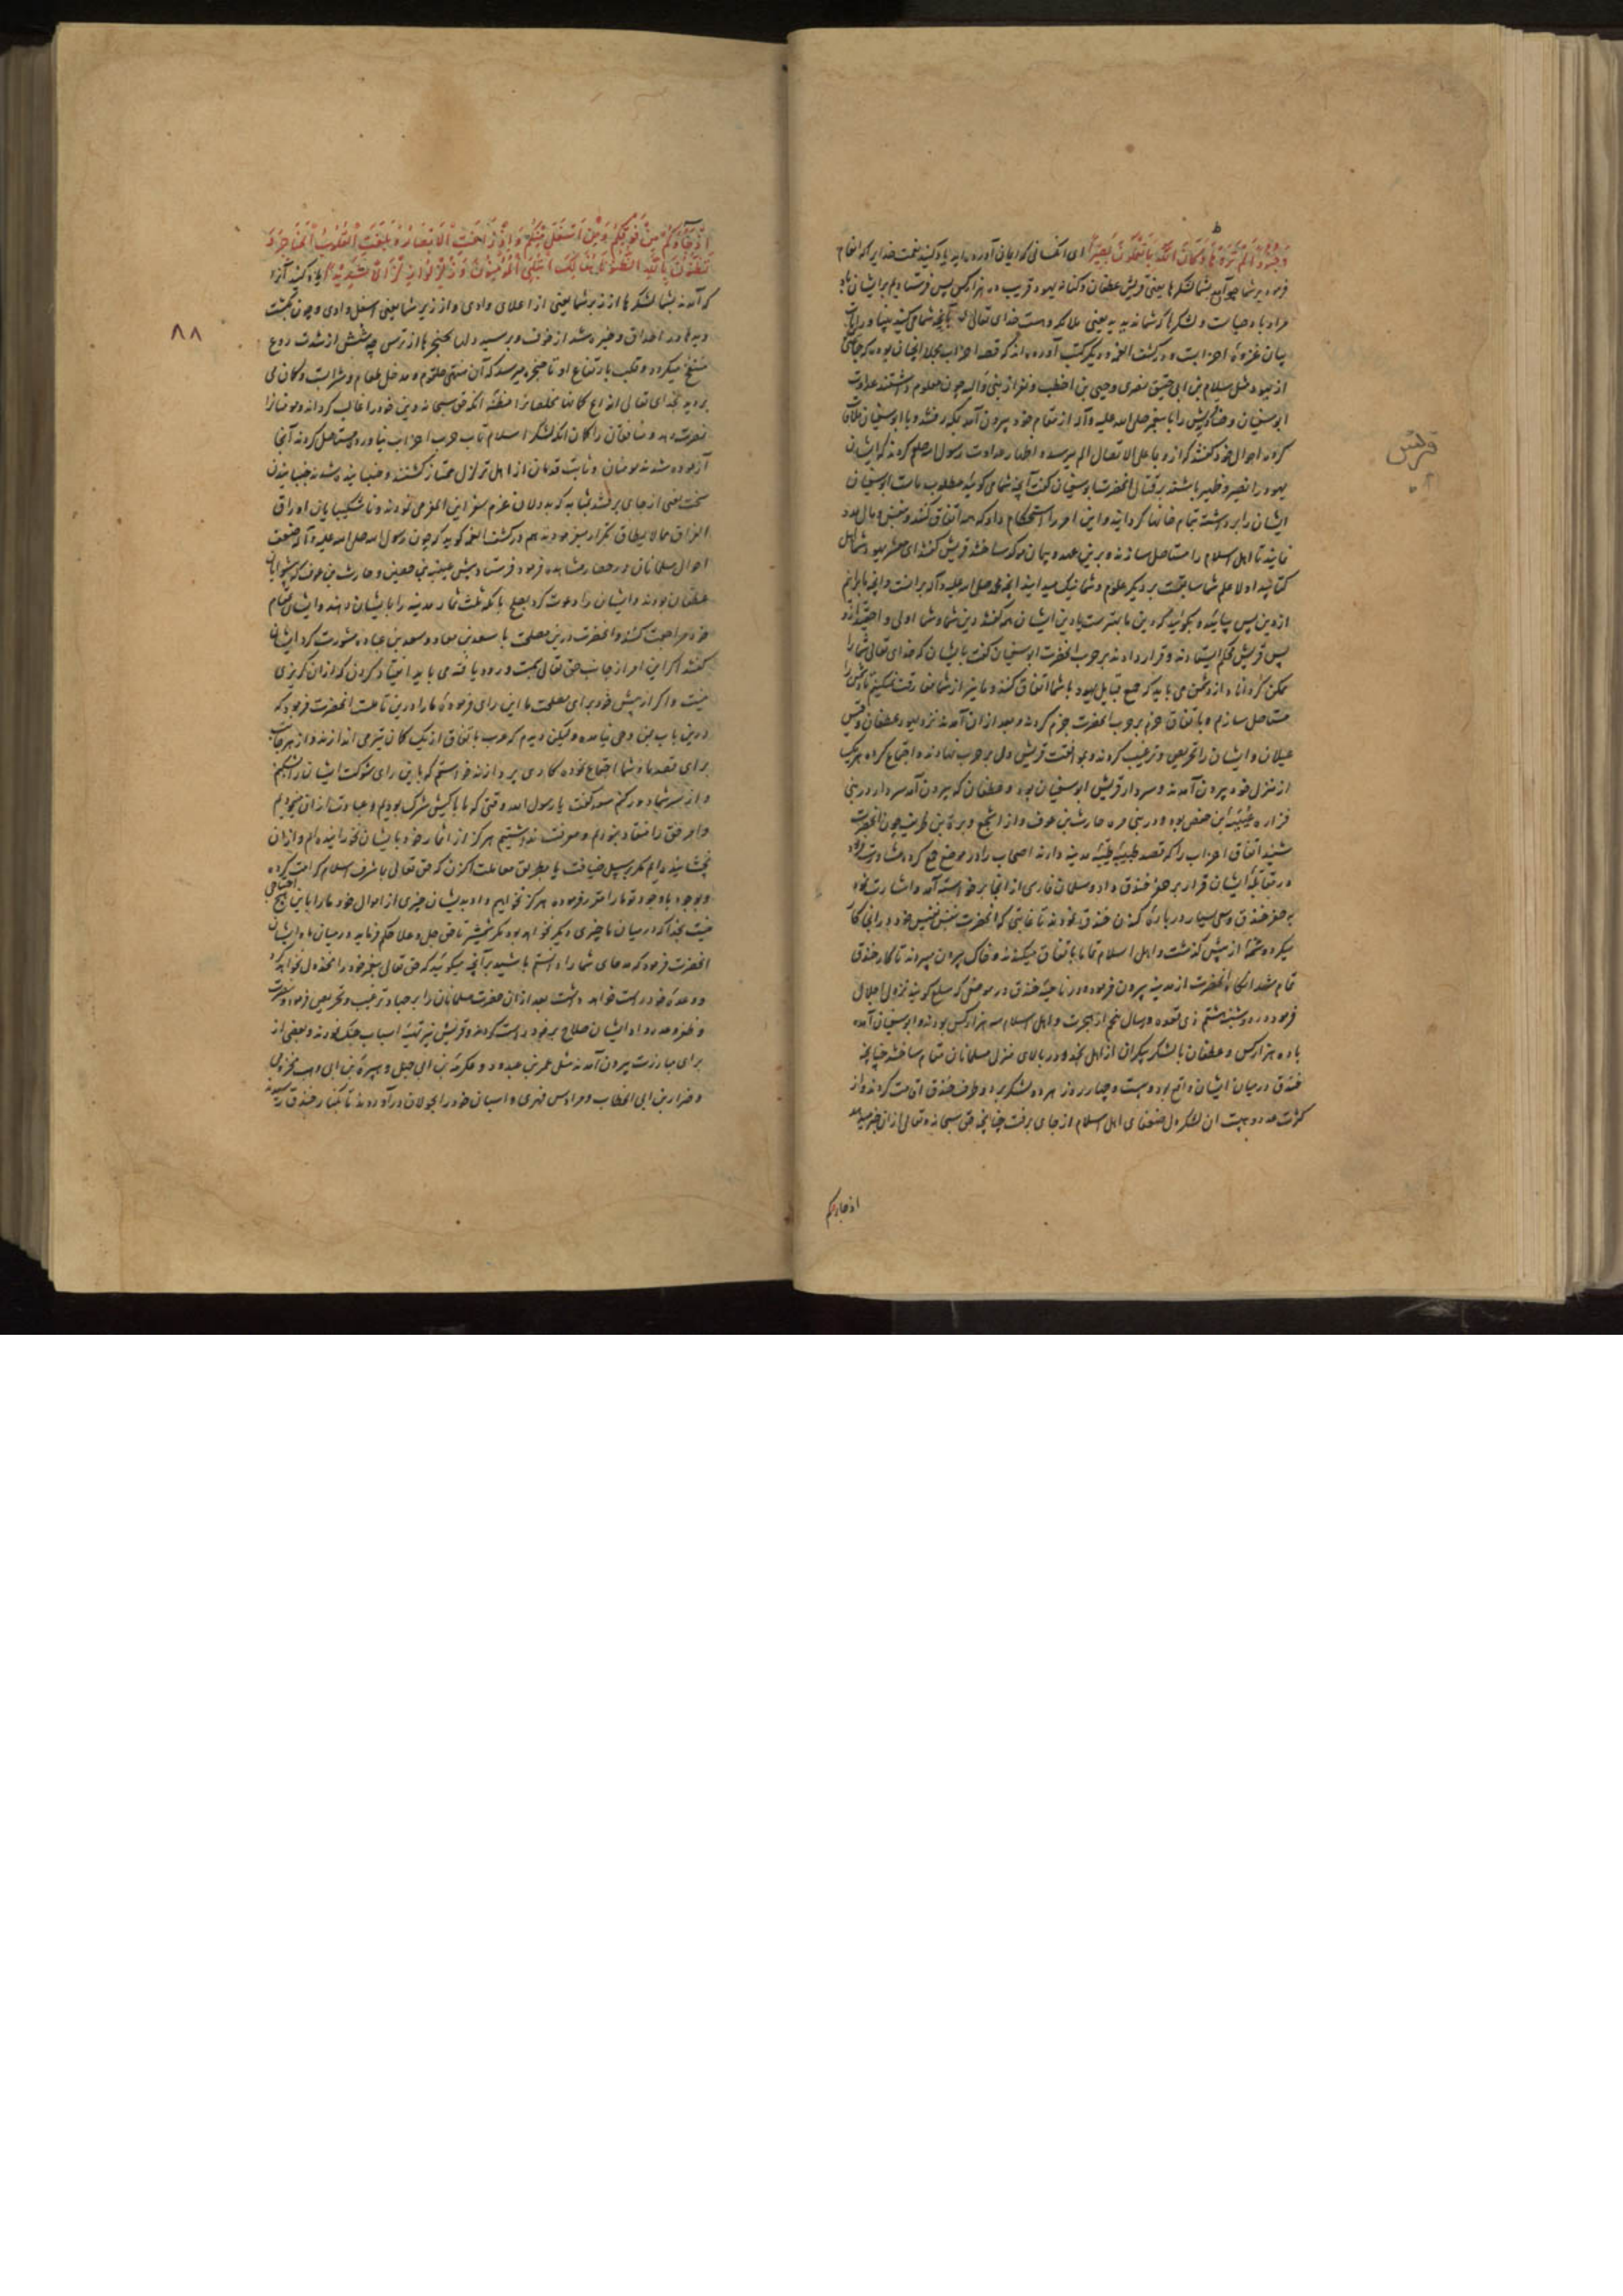 وَجُنُودًا لَمْ تَرَوْهَا وَكَانَ اللَّهُ بِمَا تَعْمَلُونَ بَصِيرًا ای آنکسانی که ایمان آورده‌اید یاد کنید نعمت خدایرا که انعام
فرمود بر شما چو آمد بشما لشکرها یعنی قریش غطفان و کنانه یهود قریب ده هزار کس پس فرستادیم بر ایشان باد
مراد باد صباست و لشکرها که شما ندیدید یعنی ملائکه و هست خدای تعالی بآنچه شما می‌کنید بینا و در اینات
بیان غزوهٔ احزابست و در کشف الغمه و دیگر کتب آورده‌اند که قصه احزاب مجملا انچنان بوده که جماعتی
از یهود مثل سلام بن ابی حقیق نضری و حیی بن اخطب و نفر از بنی وائله چون معلوم داشتند عداوت
ابوسفیان و قریش را با پیغمبر صلی الله علیه و آله از مقام خود بیرون آمده بمکه رفتند و با ابوسفیان ملاقات
کردند احوال خود گفتند که از وی علی الاتصال الم میرسد و اظهار عداوت رسول الله صلعم کردند که ایشان
یهود را نصیر و ظهیر باشند بر قتال انحضرت ابوسفیان گفت آنچه شما می‌گوئید مطلوب ماست ابوسفیان
ایشان را برداشته بتمام خانها گردانید و این امر را استحکام داد که همه اتفاق کنند و بنفس و مال مدد
نمایند تا اهل اسلام را مستاصل سازند و برین عهد و پیمان موکد ساختند قریش گفتند ای معشر یهود شما اهل
کتابید اولا علم شما سابقست بر دیگر علوم و شما نیک میدانید آنچه محمد صلی الله علیه و آله برانست و آنچه ما برانیم
از دین پس بیائید و بگوئید که دین ما بهترست یا دین ایشان همه گفتند دین شما و شما اولی و احقید از و
پس قریش محکم ایستادند و قرار دادند بر حرب انحضرت ابوسفیان گفت با ایشان که خدای تعالی شما را
ممکن گرداناد از دشمن می باید که جمع قبایل یهود با شما اتفاق کنند و ما نیز از شما مفارقت نمیکنیم تا دشمن را
مستاصل سازیم و باتفاق جزم بر حرب انحضرت جزم کردند و بعد ازان آمدند نزد یهود غطفان و قیس
عیلان و ایشان را تحریص و ترغیب کردند و بموافقت قریش دل بر حرب نهادند و اجتماع کرده هر یک
از منزل خود بیرون آمدند و سردار قریش ابوسفیان بود و غطفان که بیرون آمد سردار در بنی
فزاره عُیَینَة بن حصن بود و در بنی مره حارث بن عوف و از اشجع وبرة بن طریف چون انحضرت
شنید اتفاق احزاب را که قصد طیبهٔ مدینه دارند اصحاب را در موضع جمع کرده مشاورت فرمود
در مقابلهٔ ایشان قرار بر حفر خندق داد و سلمان فارسی از آنجا برخواسته آمد و اشارت نمود
به حفر خندق و سعی بسیار در بارهٔ کندن خندق نمودند تا غایتی که انحضرت بنفس نفیس خود درانی کار
میکرد و شمهٔ از پیش گذشت و اهل اسلام تماما باتفاق میکندند و خاک بیرون میبردند تا کار خندق
تمام شد انگاه انحضرت از مدینه بیرون فرموده در ناحیهٔ خندق در موضعی که سلع گویند نزول اجلال
فرمود در روز دوشنبه هشتم ذی قعده در سال پنجم از هجرت و اهل اسلام سه هزار کس بودند و ابوسفیان آمد
با ده هزار کس و غطفان با لشکر بیکران از اهل نجد و در بالای منزل مسلمانان مقام ساختند چنانچه
خندق درمیان ایشان واقع بود و بیست و چهار روز هر دو لشکر بر دو طرف خندق اقامت کردند و از
کثرت عدد و هیبت ان لشکر دل ضعفای اهل اسلام از جای برفت چنانچه حق سبحانه و تعالی ازان خبر میدهد
اذ جاؤکم
قریش
إِذْ جَاءُوكُمْ مِنْ فَوْقِكُمْ وَمِنْ أَسْفَلَ مِنْكُمْ وَإِذْ زَاغَتِ الْأَبْصَارُ وَبَلَغَتِ الْقُلُوبُ الْحَنَاجِرَ وَ
تَظُنُّونَ بِاللَّهِ الظُّنُونَا هُنَالِكَ ابْتُلِيَ الْمُؤْمِنُونَ وَزُلْزِلُوا زِلْزَالًا شَدِيدًا یاد کنید آنرا
که آمدند بشما لشکرها از زبر شما یعنی از اعلای وادی و از زیر شما یعنی اسفل وادی و چون بگشت
دیدها در احداق و خیره شد از خوف و برسید دلها بحنجرها از ترس چه شش از شدت روع
منتفخ میگردد و قلب بارتفاع او تا حنجره میرسد که آن منتهی حلقوم و مدخل طعام و شرابست و گمان می
بردید بخدای تعالی انواع گمانها مخلصانرا مظنه انکه حق سبحانه دین خود را غالب گرداند و مومنانرا
نصرت دهد و منافقان را گمان انکه لشکر اسلام تاب حرب احزاب نیاورده مستاصل گردند آنجا
آزموده شدند مومنان و ثابت قدمان از اهل تزلزل ممتاز گشتند و جنبانیده شدند جنبانیدن
سخت یعنی از جای برفتند بمثابه که بددلان عزم سفر این المفر می نمودند و ناشکیبایان اوراق
الفراق مما لا یطاق تکرار میفرمودند هم در کشف الغمه گوید که چون رسول الله صلی الله علیه و آله ضعف
احوال مسلمانان در حصار مشاهده فرمود فرستاد پیش عیینه بن حصین و حارث بن عوف که پیشوایان
غطفان بودند و ایشان را دعوت کرد بصلح بانکه ثلث ثمار مدینه را بایشان دهند و ایشان بمقام
خود مراجعت کنند و انحضرت درین مصلحت با سعد بن معاذ و سعد بن عباده مشورت کرد ایشان
گفتند اگر این امر از جانب حق تعالی سمت ورود یافته می باید انقیاد کردن که ازان گریزی
نیست و اگر از پیش خود برای مصلحت ما این رای فرموده ما را درین تاملست انحضرت فرمود که
درین باب بمن وحی نیامده و لیکن دیدم که عرب باتفاق از یک کمان تیر می اندازند و از هر جانب
برای قصد ما و شما اجتماع نموده کاری پردازند خواستم که باین رای شوکت ایشان را بشکنم
و از سر شما دور کنم سعد گفت یا رسول الله وقتی که ما با کیش شرک بودیم و عبادت اوثان میکردیم
و امر حق را منقاد نبودیم و معرفت نداشتیم هرگز از اثمار خود بایشان نخورانیده‌ایم و ازان
نچشانیده‌ایم مگر بر سبیل ضیافت یا بطریق معاملت اکنون که حق تعالی ما بشرف اسلام کرامت کرده
و بوجود باوجود تو ما را معزز فرموده هرگز نخواهیم داد بدیشان چیزی از اموال خود ما را باین هیچ احتیاجی
نیست بخدا که درمیان ما چیزی دیگر نخواهد بود مگر شمشیر تا حق جل و علا حکم فرماید درمیان ما و ایشان
انحضرت فرمود که مدعای شما را دانستم باشید بر آنچه میگوئید که حق تعالی پیغمبر خود را مخذول نخواهد کرد
و وعدهٔ خود راست خواهد داشت بعد ازان حضرت مسلمانان را بر جهاد ترغیب و تحریص فرمود و نصرت
و ظفر وعده داد ایشان صلاح بر خود راست کردند و قریش نیز تهیهٔ اسباب جنگ نمودند و بعضی از
برای مبارزت بیرون آمدند مثل عمر بن عبدود و عکرمهٔ بن ابی جهل و هبیرهٔ بن ابی وهب مخزومی
و ضرار بن ابی الخطاب و مرداس فهری و اسبان خود را بجولان درآوردند تا بکنار خندق رسیدند
۸۸